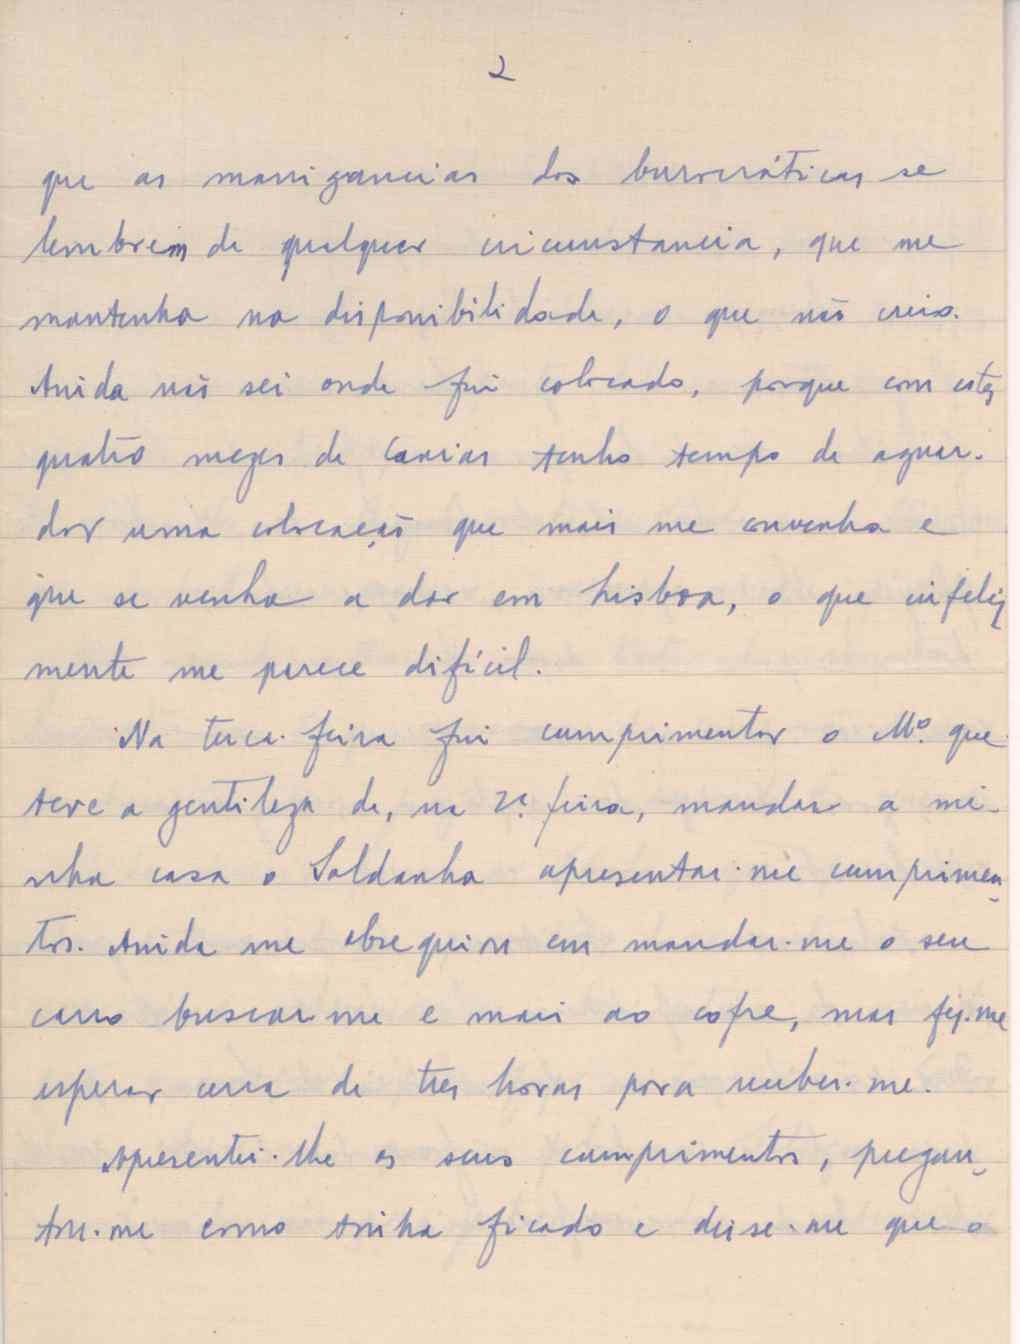 2
que as manigancias dos burocráticas se
lembrem de qualquer circumstancia, que me
mantenha na disponibilidade, o que não creio.
Ainda não sei onde fui colocado, porque com estes
quatro mezes de Caxias tenho tempo de aguar-
dar uma colocação que mais me convenha e
que se venha a dar em Lisboa, o que infeliz
mente me parece difícil.
Na terca-feira fui cumprimentar o Mº. que
teve a gentileza de, na 2ª. feira, mandar a mi-
nha casa o Saldanha apresentar-me cumprimen-
tos. Ainda me obsequiou em mandar-me o seu
carro buscar me e mais ao cofre, mas fez-me
esperar cerca de tres horas para receber-me.
Apresentei-lhe os seus cumprimentos, pregun-
tou-me como tinha ficado e disse-me que o